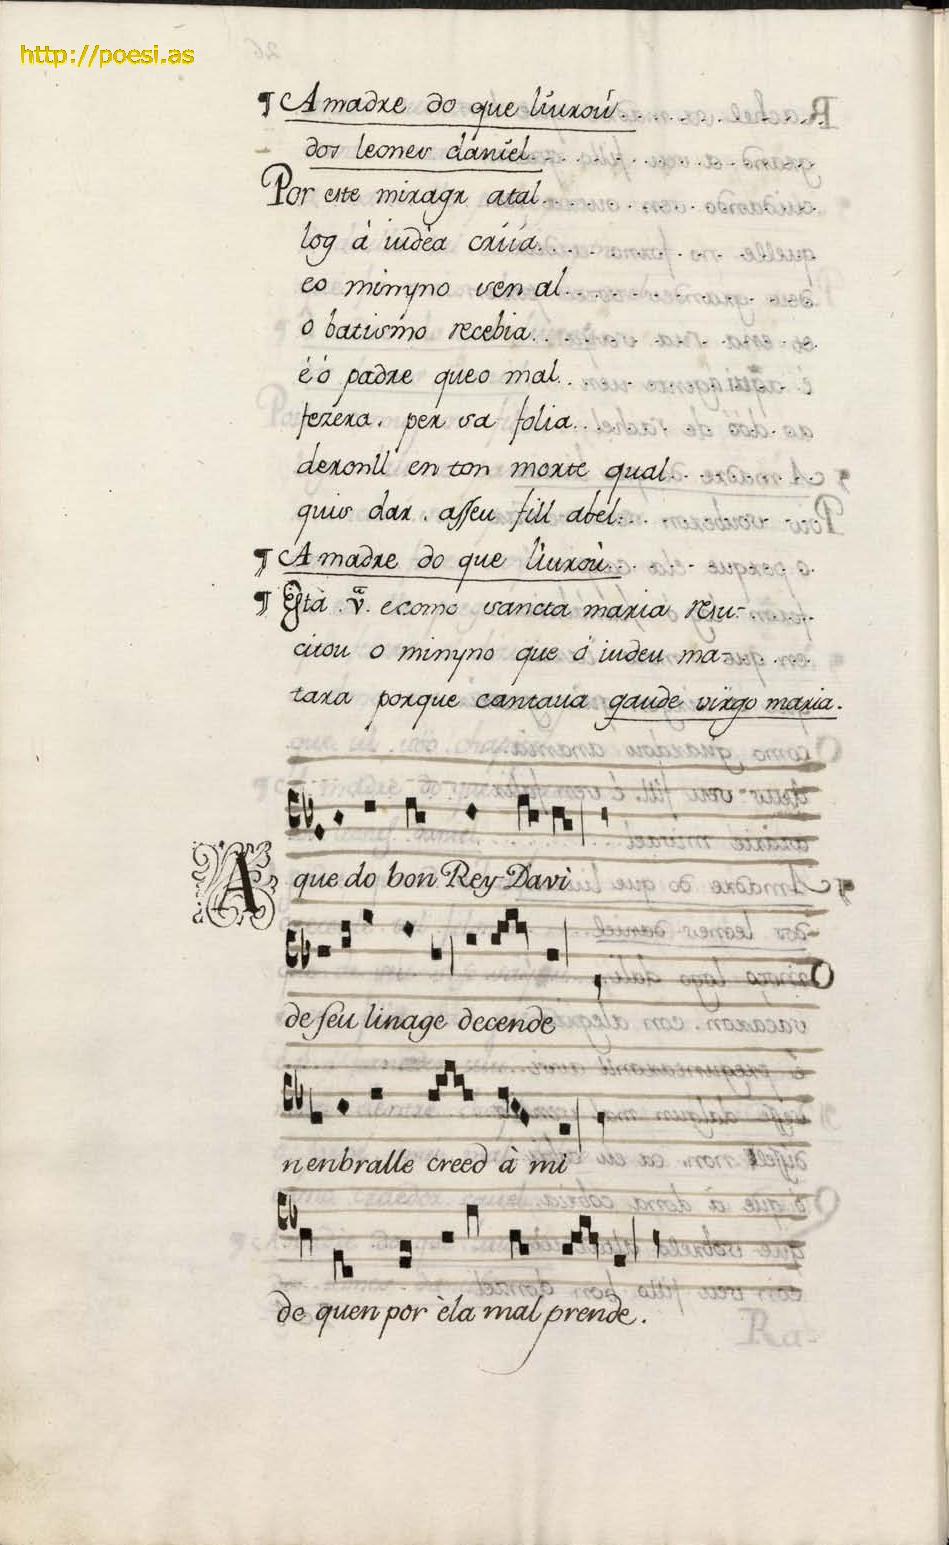 http://poesi.as
¶ A madre do que liurou
dos leones daniel.
Por este miragr atal
log á iudéa criía
eo minyno ven al
o batismo recebia
é ó padre queo mal
fezera. per sa folia
deronll en ton morte qual
quis dar. asseu fill abel.
¶ A madre do que liurou
¶ Esta .v̄. ecomo sancta maria resu-
citou o minyno que ó iudeu ma-
tara porque cantaua gaude virgo maria.
A que do bon Rey Davi
de seu linage decende
nenbralle creed à mi
de quen por èla mal prende.